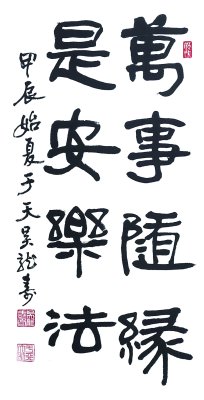 萬事随緣
是安樂法
甲辰始夏于天吴龍壽